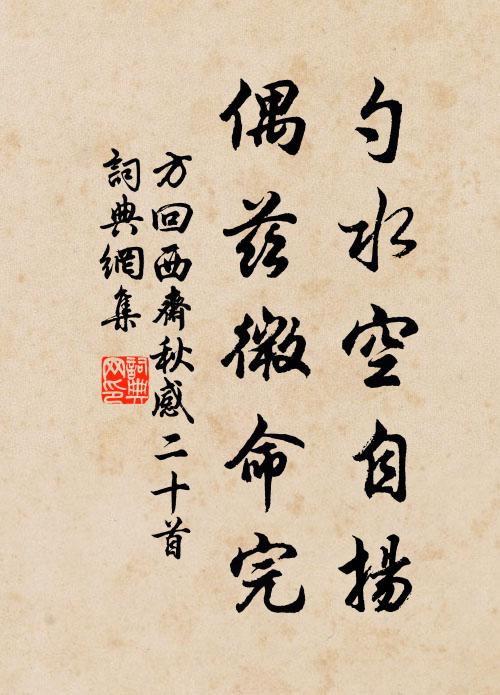 勺水空自揚
偶茲微命完
方回西齋秋感二十首
詞典網集
詞典
网印